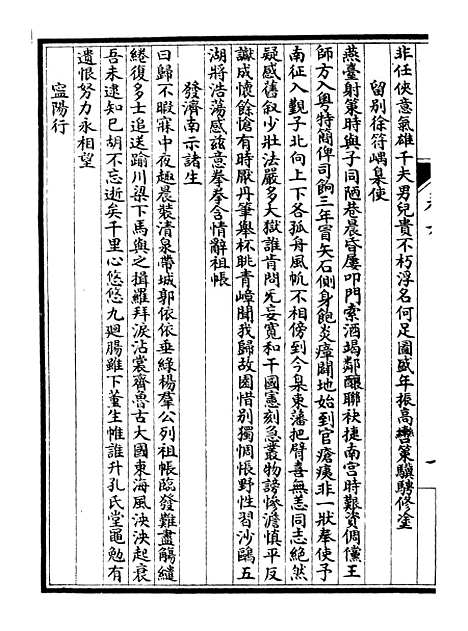 非任俠意氣雄千夫男兒貴不朽浮名何足圖盛年振高轡策驥騁修塗
留別徐符嵎臬使
燕臺射策時與子同陋巷晨昏屢叩門索酒竭鄰釀聯袂捷南宮時艱資倜儻王
師方入粵特簡俾司餉三年冒矢石側身飽炎瘴闢地始到官瘡痍非一狀奉使予
南征入覲子北向上下各孤舟風帆不相傍到今臬東藩把臂喜無恙同志絕然
疑感舊叙少壯法嚴多大獄誰肯問旡妄寬和干國憲刻急叢物謗慘澹慎平反
讞成懷餘愴有時厭丹筆舉杯眺青嶂聞我歸故園惜別獨惆悵野性習沙鷗五
湖將浩蕩感茲意拳拳含情辭祖帳
發濟南示諸生
曰歸不暇寐中夜趣晨裝清泉帶城郭依依垂綠楊羣公列祖帳臨發難盡觴繾
綣復多士追送踰川梁下馬與之揖羅拜淚沾裳齊魯古大國東海風泱泱起衰
吾未逮知已胡不忘逝矣千里心悠悠九廻腸雖下董生帷誰升孔氏堂黽勉有
遺恨努力永相望
寍陽行